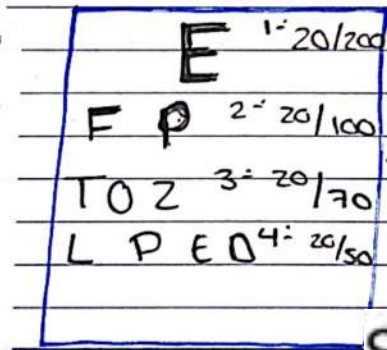 E 1- 20/200
F P 2- 20/100
T O Z 3- 20/70
L P E D 4- 20/50